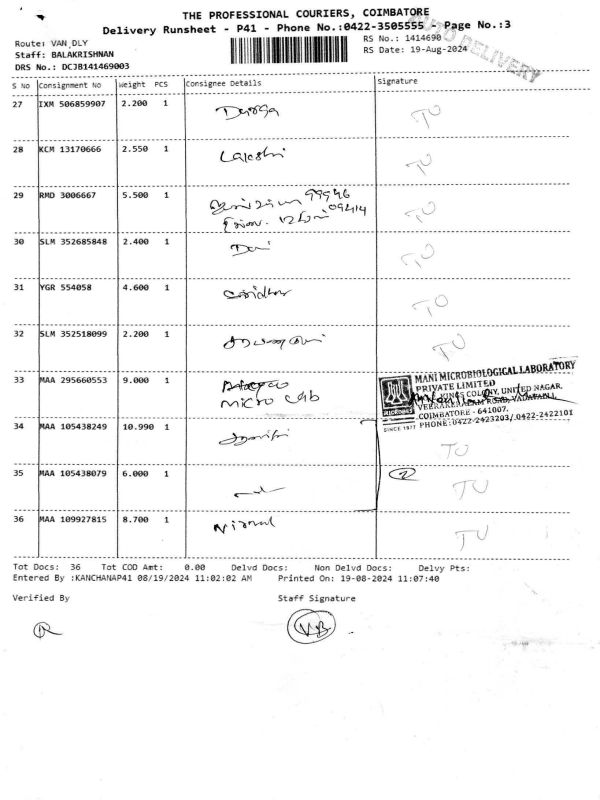 THE PROFESSIONAL COURIERS, COIMBATORE
Delivery Runsheet - P41 - Phone No.:0422-3505555 - Page No.:3
AUTO DELIVERY
Route: VAN_DLY
Staff: BALAKRISHNAN
DRS No.: DCJB141469003
RS No.: 1414690
RS Date: 19-Aug-2024
S No Consignment No Weight PCS Consignee Details Signature
27 IXM 506859907 2.200 1 Durga TU
28 KCM 13170666 2.550 1 TU
29 RMD 3006667 5.500 1 99946 09414 TU
30 SLM 352685848 2.400 1 TU
31 YGR 554058 4.600 1 TU
32 SLM 352518099 2.200 1 TU
33 MAA 295660553 9.000 1 micro Lab
MANI MICROBIOLOGICAL LABORATORY
PRIVATE LIMITED
KINGS COLONY, UNITED NAGAR,
VEERAKERALAM ROAD, VADAVALLI,
COIMBATORE - 641007.
PHONE: 0422-2423203 / 0422-2422101
SINCE 1977
34 MAA 105438249 10.990 1 TU
35 MAA 105438079 6.000 1 2 TU
36 MAA 109927815 8.700 1 Nirmal TU
Tot Docs: 36 Tot COD Amt: 0.00 Delvd Docs: Non Delvd Docs: Delvy Pts:
Entered By :KANCHANAP41 08/19/2024 11:02:02 AM Printed On: 19-08-2024 11:07:40
Verified By Staff Signature